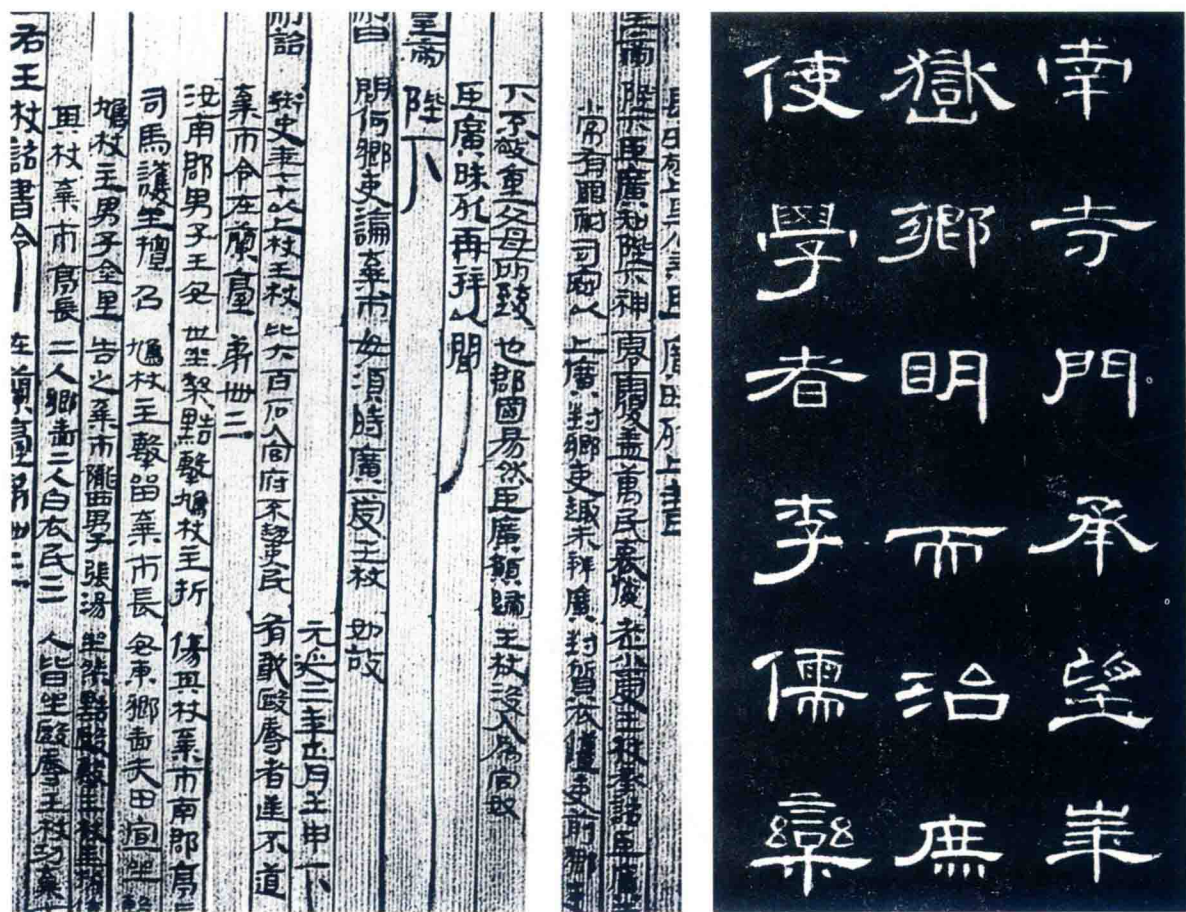 長安敬上里公乘臣廣昧死上書
皇帝陛下臣廣知陛下神零覆蓋萬民哀憐老小受王杖承詔臣廣未
常有罪耐司寇以上廣對鄉吏趣未辨廣對質衣彊吏前鄉吏
下不敬重父母所致也郡國易然臣廣願歸王杖沒入為官奴
臣廣昧死再拜以聞
皇帝陛下
制曰問何鄉吏論棄市毋須時廣受王杖如故
元延三年正月壬申下
制詔御史年七十以上杖王杖比六百石入官府不趨吏民有敢毆辱者逆不道
棄市令在蘭臺第卌三
汝南郡男子王安世坐桀黠擊鳩杖主折傷其杖棄市南郡亭長
司馬護坐擅召鳩杖主擊留棄市長安東鄉嗇夫田宣坐繫
鳩杖主男子金里告之棄市隴西男子張湯坐桀黠毆擊王杖主折傷
其杖棄市亭長二人鄉嗇二人白衣民三人皆坐毆辱王杖功棄市
右王杖詔書令在蘭臺第卌三
南寺門承望崋
嶽鄉明而治庶
使學者李儒欒